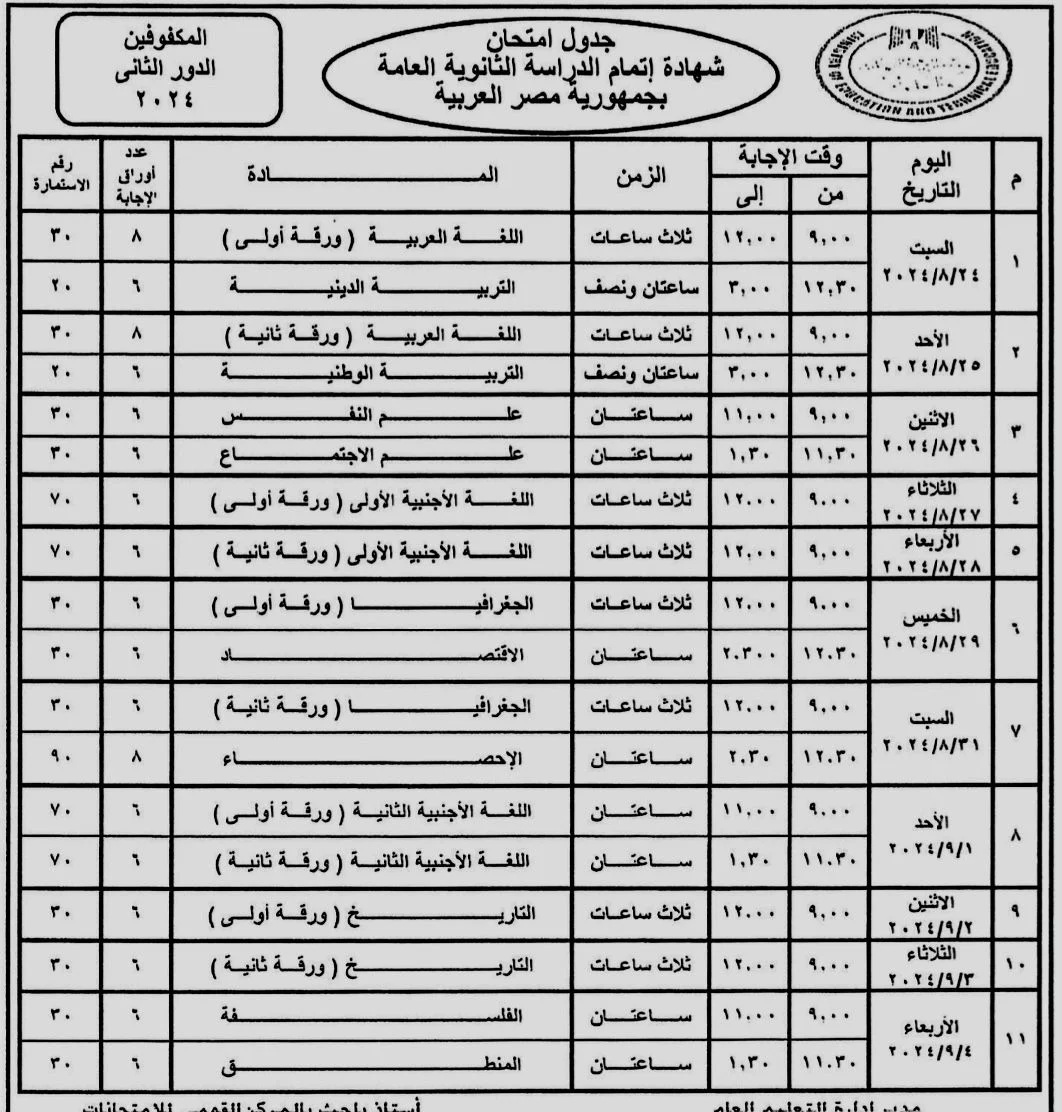 المكفوفين
الدور الثانى
٢٠٢٤
جدول امتحان
شهادة إتمام الدراسة الثانوية العامة
بجمهورية مصر العربية
EDUCATION AND TECHNICAL
م اليوم التاريخ وقت الإجابة من إلى الزمن المـــادة عدد أوراق الإجابة رقم الاستمارة
١ السبت ٢٠٢٤/٨/٢٤ ٩,٠٠ ١٢,٠٠ ثلاث ساعات اللغة العربية ( ورقة أولى ) ٨ ٣٠
١٢,٣٠ ٣,٠٠ ساعتان ونصف التربية الدينية ٦ ٢٠
٢ الأحد ٢٠٢٤/٨/٢٥ ٩,٠٠ ١٢,٠٠ ثلاث ساعات اللغة العربية ( ورقة ثانية ) ٨ ٣٠
١٢,٣٠ ٣,٠٠ ساعتان ونصف التربية الوطنية ٦ ٢٠
٣ الاثنين ٢٠٢٤/٨/٢٦ ٩,٠٠ ١١,٠٠ ساعتان علم النفس ٦ ٣٠
١١,٣٠ ١,٣٠ ساعتان علم الاجتماع ٦ ٣٠
٤ الثلاثاء ٢٠٢٤/٨/٢٧ ٩,٠٠ ١٢,٠٠ ثلاث ساعات اللغة الأجنبية الأولى ( ورقة أولى ) ٦ ٧٠
٥ الأربعاء ٢٠٢٤/٨/٢٨ ٩,٠٠ ١٢,٠٠ ثلاث ساعات اللغة الأجنبية الأولى ( ورقة ثانية ) ٦ ٧٠
٦ الخميس ٢٠٢٤/٨/٢٩ ٩.٠٠ ١٢.٠٠ ثلاث ساعات الجغرافيا ( ورقة أولى ) ٦ ٣٠
١٢.٣٠ ٢.٣٠٠ ساعتان الاقتصاد ٦ ٣٠
٧ السبت ٢٠٢٤/٨/٣١ ٩,٠٠ ١٢,٠٠ ثلاث ساعات الجغرافيا ( ورقة ثانية ) ٦ ٣٠
١٢.٣٠ ٢.٣٠ ساعتان الإحصاء ٨ ٩٠
٨ الأحد ٢٠٢٤/٩/١ ٩,٠٠ ١١,٠٠ ساعتان اللغة الأجنبية الثانية ( ورقة أولى ) ٦ ٧٠
١١.٣٠ ١,٣٠ ساعتان اللغة الأجنبية الثانية ( ورقة ثانية ) ٦ ٧٠
٩ الاثنين ٢٠٢٤/٩/٢ ٩,٠٠ ١٢.٠٠ ثلاث ساعات التاريخ ( ورقة أولى ) ٦ ٣٠
١٠ الثلاثاء ٢٠٢٤/٩/٣ ٩,٠٠ ١٢,٠٠ ثلاث ساعات التاريخ ( ورقة ثانية ) ٦ ٣٠
١١ الأربعاء ٢٠٢٤/٩/٤ ٩,٠٠ ١١,٠٠ ساعتان الفلسفة ٦ ٣٠
١١.٣٠ ١,٣٠ ساعتان المنطق ٦ ٣٠
مدير إدارة التعليم العام أستاذ باحث بالمركز القومى للامتحانات